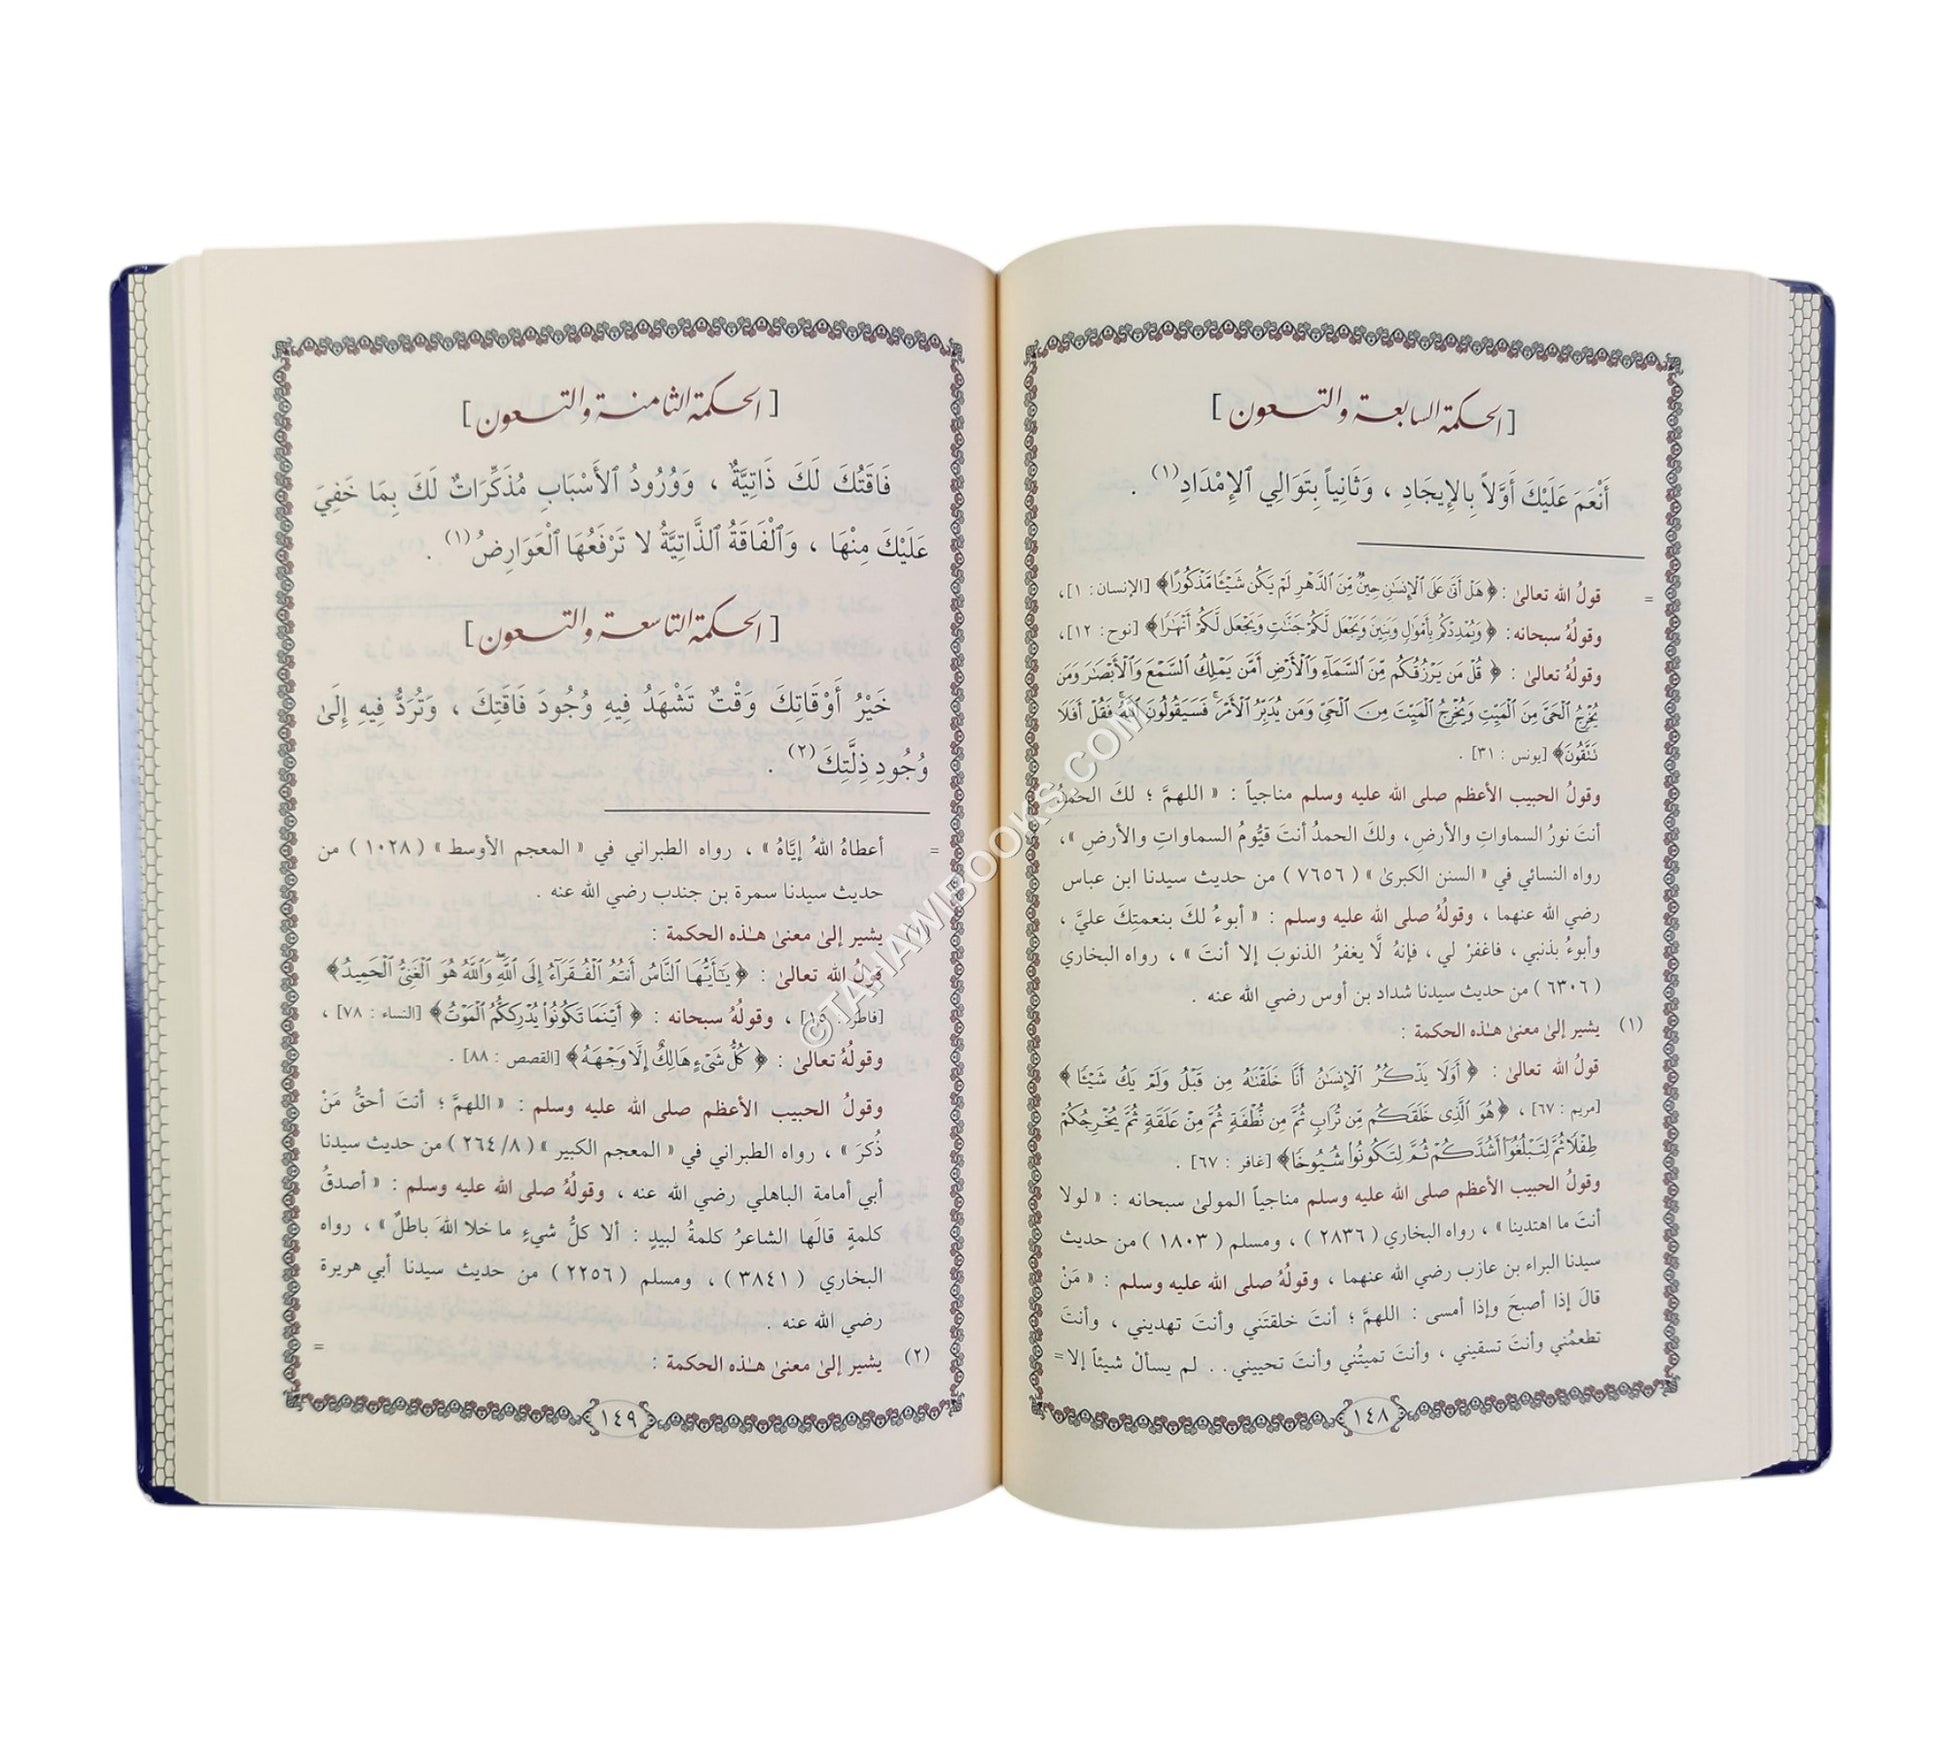 [الحكمة السابعة والتسعون]
أَنْعَمَ عَلَيْكَ أَوَّلاً بِالإِيجَادِ ، وَثَانِياً بِتَوَالِي الإِمْدَادِ(١) .
= قولُ الله تعالىٰ : ﴿هَلْ أَتَىٰ عَلَى ٱلْإِنسَٰنِ حِينٌ مِّنَ ٱلدَّهْرِ لَمْ يَكُن شَيْـًٔا مَّذْكُورًا﴾ [الإنسان : ١]،
وقولُهُ سبحانه: ﴿وَيُمْدِدْكُم بِأَمْوَٰلٍ وَبَنِينَ وَيَجْعَل لَّكُمْ جَنَّٰتٍ وَيَجْعَل لَّكُمْ أَنْهَٰرًا﴾ [نوح : ١٢]،
وقولُهُ تعالىٰ : ﴿قُلْ مَن يَرْزُقُكُم مِّنَ ٱلسَّمَآءِ وَٱلْأَرْضِ أَمَّن يَمْلِكُ ٱلسَّمْعَ وَٱلْأَبْصَٰرَ وَمَن
يُخْرِجُ ٱلْحَىَّ مِنَ ٱلْمَيِّتِ وَيُخْرِجُ ٱلْمَيِّتَ مِنَ ٱلْحَىِّ وَمَن يُدَبِّرُ ٱلْأَمْرَ فَسَيَقُولُونَ ٱللَّهُ فَقُلْ أَفَلَا
تَتَّقُونَ﴾ [يونس : ٣١] .
وقولُ الحبيب الأعظم صلى الله عليه وسلم مناجياً : « اللهمَّ ؛ لكَ الحمدُ
أنتَ نورُ السماواتِ والأرضِ، ولكَ الحمدُ أنتَ قيُّومُ السماواتِ والأرضِ »،
رواه النسائي في « السنن الكبرىٰ » ( ٧٦٥٦ ) من حديث سيدنا ابن عباس
رضي الله عنهما ، وقولُهُ صلى الله عليه وسلم : « أبوءُ لكَ بنعمتِكَ عليَّ ،
وأبوءُ بذنبي ، فاغفرْ لي ، فإنهُ لَّا يغفرُ الذنوبَ إلا أنتَ » ، رواه البخاري
( ٦٣٠٦ ) من حديث سيدنا شداد بن أوس رضي الله عنه .
(١) يشير إلىٰ معنىٰ هـٰذه الحكمة :
قولُ الله تعالىٰ : ﴿أَوَلَا يَذْكُرُ ٱلْإِنسَٰنُ أَنَّا خَلَقْنَٰهُ مِن قَبْلُ وَلَمْ يَكُ شَيْـًٔا﴾
[مريم : ٦٧] ، ﴿هُوَ ٱلَّذِى خَلَقَكُم مِّن تُرَابٍ ثُمَّ مِن نُّطْفَةٍ ثُمَّ مِنْ عَلَقَةٍ ثُمَّ يُخْرِجُكُمْ
طِفْلًا ثُمَّ لِتَبْلُغُوٓا۟ أَشُدَّكُمْ ثُمَّ لِتَكُونُوا۟ شُيُوخًا﴾ [غافر : ٦٧] .
وقولُ الحبيب الأعظم صلى الله عليه وسلم مناجياً المولىٰ سبحانه : « لولا
أنتَ ما اهتدينا » ، رواه البخاري ( ٢٨٣٦ ) ، ومسلم ( ١٨٠٣ ) من حديث
سيدنا البراء بن عازب رضي الله عنهما ، وقولُهُ صلى الله عليه وسلم : « مَنْ
قالَ إذا أصبحَ وإذا أمسى : اللهمَّ ؛ أنتَ خلقتَني وأنتَ تهديني ، وأنتَ
تطعمُني وأنتَ تسقيني ، وأنتَ تميتُني وأنتَ تحييني . . لم يسألْ شيئاً إلا =
١٤٨
[الحكمة الثامنة والتسعون]
فَاقَتُكَ لَكَ ذَاتِيَّةٌ ، وَوُرُودُ ٱلأَسْبَابِ مُذَكِّرَاتٌ لَكَ بِمَا خَفِيَ
عَلَيْكَ مِنْهَا ، وَٱلْفَاقَةُ ٱلذَّاتِيَّةُ لا تَرْفَعُهَا ٱلْعَوَارِضُ(١) .
[الحكمة التاسعة والتسعون]
خَيْرُ أَوْقَاتِكَ وَقْتٌ تَشْهَدُ فِيهِ وُجُودَ فَاقَتِكَ ، وَتُرَدُّ فِيهِ إِلَىٰ
وُجُودِ ذِلَّتِكَ(٢) .
= أعطاهُ اللهُ إيَّاهُ » ، رواه الطبراني في « المعجم الأوسط » ( ١٠٢٨ ) من
حديث سيدنا سمرة بن جندب رضي الله عنه .
يشير إلىٰ معنىٰ هـٰذه الحكمة :
قولُ الله تعالىٰ : ﴿يَٰٓأَيُّهَا ٱلنَّاسُ أَنتُمُ ٱلْفُقَرَآءُ إِلَى ٱللَّهِ وَٱللَّهُ هُوَ ٱلْغَنِىُّ ٱلْحَمِيدُ﴾
[فاطر : ١٥] ، وقولُهُ سبحانه : ﴿أَيْنَمَا تَكُونُوا۟ يُدْرِككُّمُ ٱلْمَوْتُ﴾ [النساء : ٧٨] ،
وقولُهُ تعالىٰ : ﴿كُلُّ شَىْءٍ هَالِكٌ إِلَّا وَجْهَهُ﴾ [القصص : ٨٨] .
وقولُ الحبيب الأعظم صلى الله عليه وسلم : « اللهمَّ ؛ أنتَ أحقُّ مَنْ
ذُكرَ » ، رواه الطبراني في « المعجم الكبير » ( ٢٦٤/٨ ) من حديث سيدنا
أبي أمامة الباهلي رضي الله عنه ، وقولُهُ صلى الله عليه وسلم : « أصدقُ
كلمةٍ قالَها الشاعرُ كلمةُ لبيدٍ : ألا كلُّ شيءٍ ما خلا اللهَ باطلٌ » ، رواه
البخاري ( ٣٨٤١ ) ، ومسلم ( ٢٢٥٦ ) من حديث سيدنا أبي هريرة
رضي الله عنه .
(٢) يشير إلىٰ معنىٰ هـٰذه الحكمة : =
١٤٩
©TAHAWIBOOKS.COM